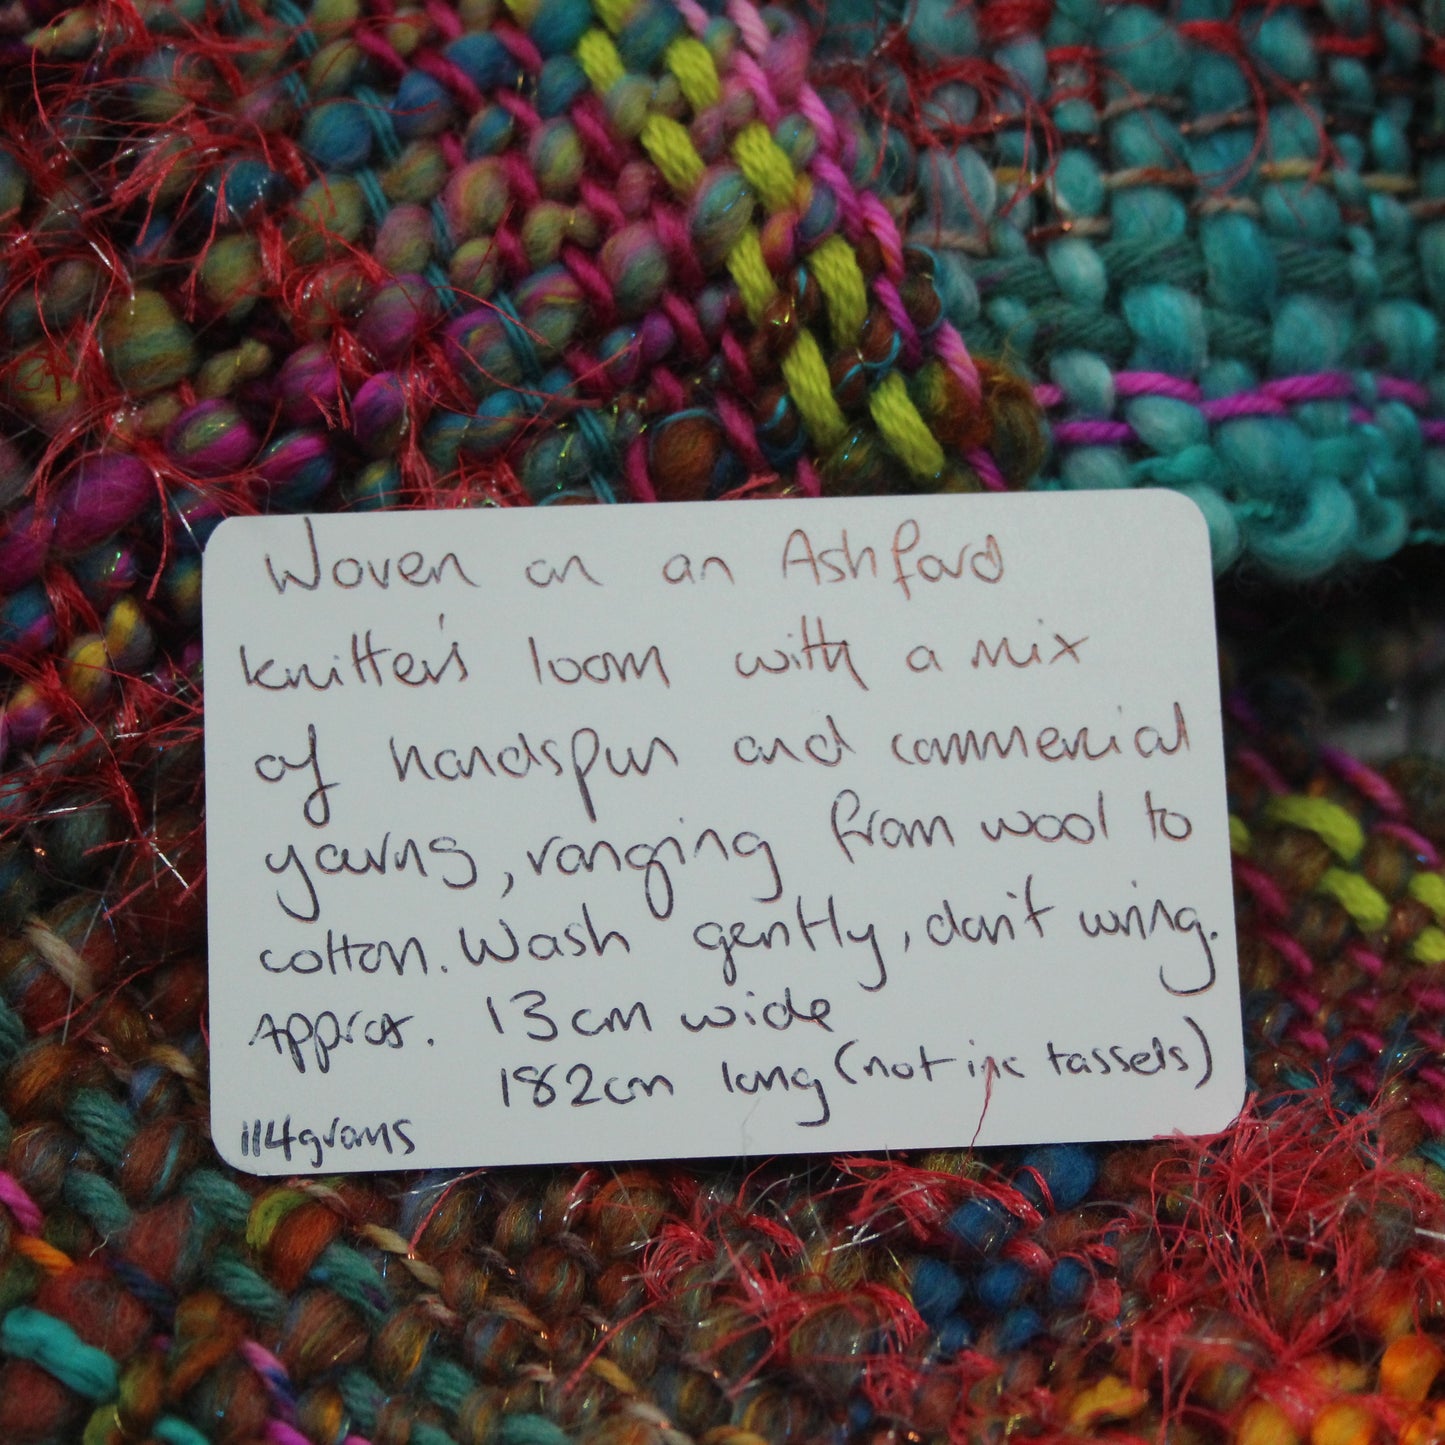 Woven on an Ashford
knitter's loom with a mix
of handspun and commercial
yarns, ranging from wool to
cotton. Wash gently, don't wring.
Approx. 13cm wide
182cm long (not inc tassels)
114grams